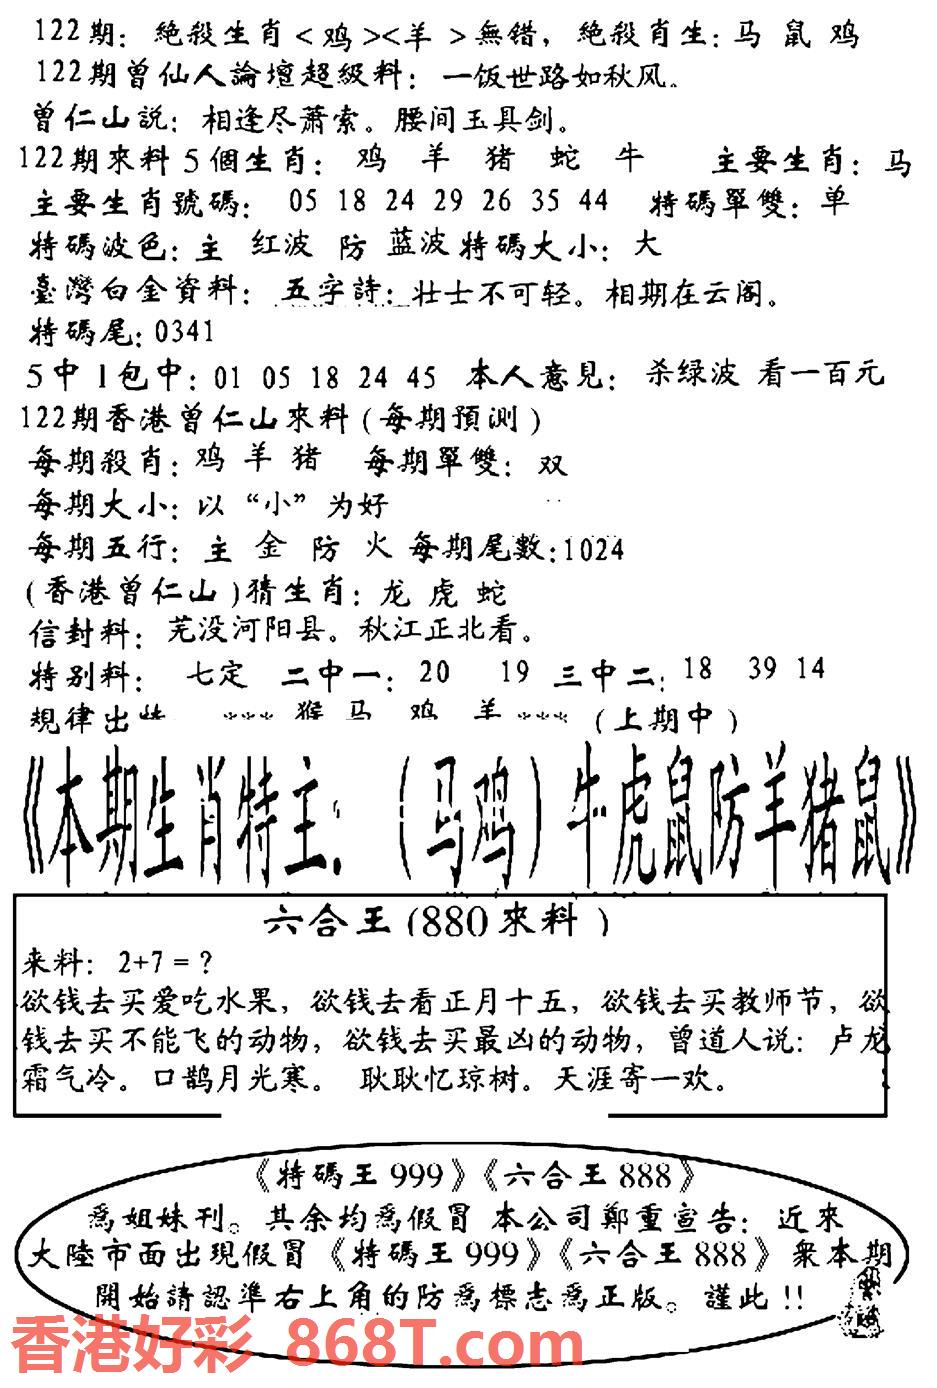 122期：絶殺生肖<鸡><羊>無错，絶殺肖生：马 鼠 鸡
122期曾仙人論壇超級料：一饭世路如秋风。
曾仁山説：相逢尽萧索。腰间玉具剑。
122期來料5個生肖： 鸡 羊 猪 蛇 牛 主要生肖：马
主要生肖號碼： 05 18 24 29 26 35 44 特碼單雙：单
特碼波色：主 红波 防 蓝波 特碼大小：大
臺灣白金資料： 五字詩：壮士不可轻。相期在云阁。
特碼尾：0341
5中1包中：01 05 18 24 45 本人意見： 杀绿波 看一百元
122期香港曾仁山來料(每期預測)
每期殺肖：鸡 羊 猪 每期單雙：双
每期大小：以“小”为好
每期五行：主 金 防 火 每期尾數：1024
(香港曾仁山)猜生肖：龙 虎 蛇
信封料：芜没河阳县。秋江正北看。
特别料： 七定 二中一：20 19 三中二：18 39 14
規律出特 *** 猴 马 鸡 羊 *** (上期中)
《本期生肖特主：(马鸡)牛虎鼠防羊猪鼠》
六合王(880來料)
来料：2+7=？
欲钱去买爱吃水果，欲钱去看正月十五，欲钱去买教师节，欲
钱去买不能飞的动物，欲钱去买最凶的动物，曾道人说：卢龙
霜气冷。口鹊月光寒。 耿耿忆琼树。天涯寄一欢。
《特碼王999》《六合王888》
爲姐妹刊。其余均爲假冒 本公司鄭重宣告：近來
大陸市面出現假冒《特碼王999》《六合王888》衆本期
開始請認準右上角的防爲標志爲正版。謹此!!
香港好彩 868T.com